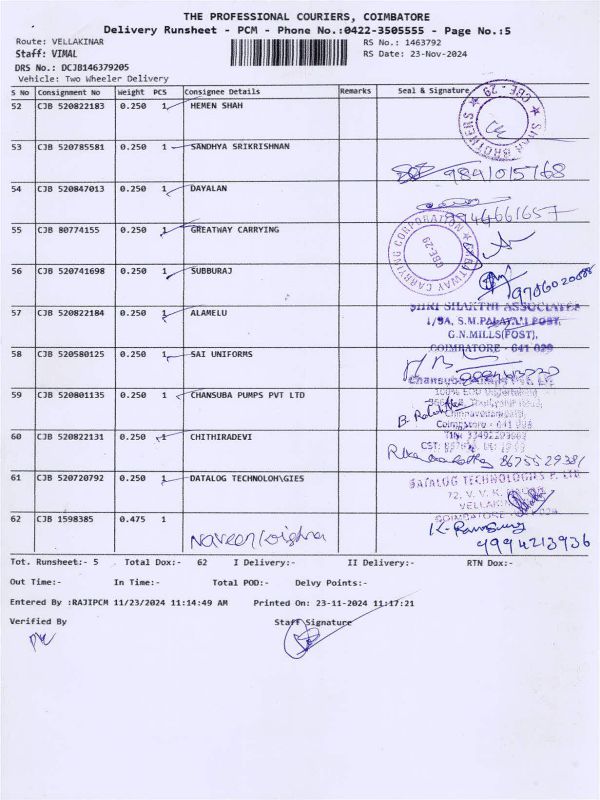 THE PROFESSIONAL COURIERS, COIMBATORE
Delivery Runsheet - PCM - Phone No.:0422-3505555 - Page No.:5
Route: VELLAKINAR RS No.: 1463792
Staff: VIMAL RS Date: 23-Nov-2024
DRS No.: DCJB146379205
Vehicle: Two Wheeler Delivery
S No Consignment No Weight PCS Consignee Details Remarks Seal & Signature
52 CJB 520822183 0.250 1 HEMEN SHAH
CBE-29
53 CJB 520785581 0.250 1 SANDHYA SRIKRISHNAN
9841015768
54 CJB 520847013 0.250 1 DAYALAN
9944661657
55 CJB 80774155 0.250 1 GREATWAY CARRYING
GREATWAY CARRYING CORPORATION
CBE-29
56 CJB 520741698 0.250 1 SUBBURAJ
57 CJB 520822184 0.250 1 ALAMELU
SHRI SHAKTHI ASSOCIATES
G.N.MILLS(POST),
COIMBATORE - 641 029
58 CJB 520580125 0.250 1 SAI UNIFORMS
59 CJB 520801135 0.250 1 CHANSUBA PUMPS PVT LTD
60 CJB 520822131 0.250 1 CHITHIRADEVI
61 CJB 520720792 0.250 1 DATALOG TECHNOLOH\GIES
DATALOG TECHNOLOGIES P. LTD
62 CJB 1598385 0.475 1
Naveen krishna
9994213936
Tot. Runsheet:- 5 Total Dox:- 62 I Delivery:- II Delivery:- RTN Dox:-
Out Time:- In Time:- Total POD:- Delvy Points:-
Entered By :RAJIPCM 11/23/2024 11:14:49 AM Printed On: 23-11-2024 11:17:21
Verified By Staff Signature